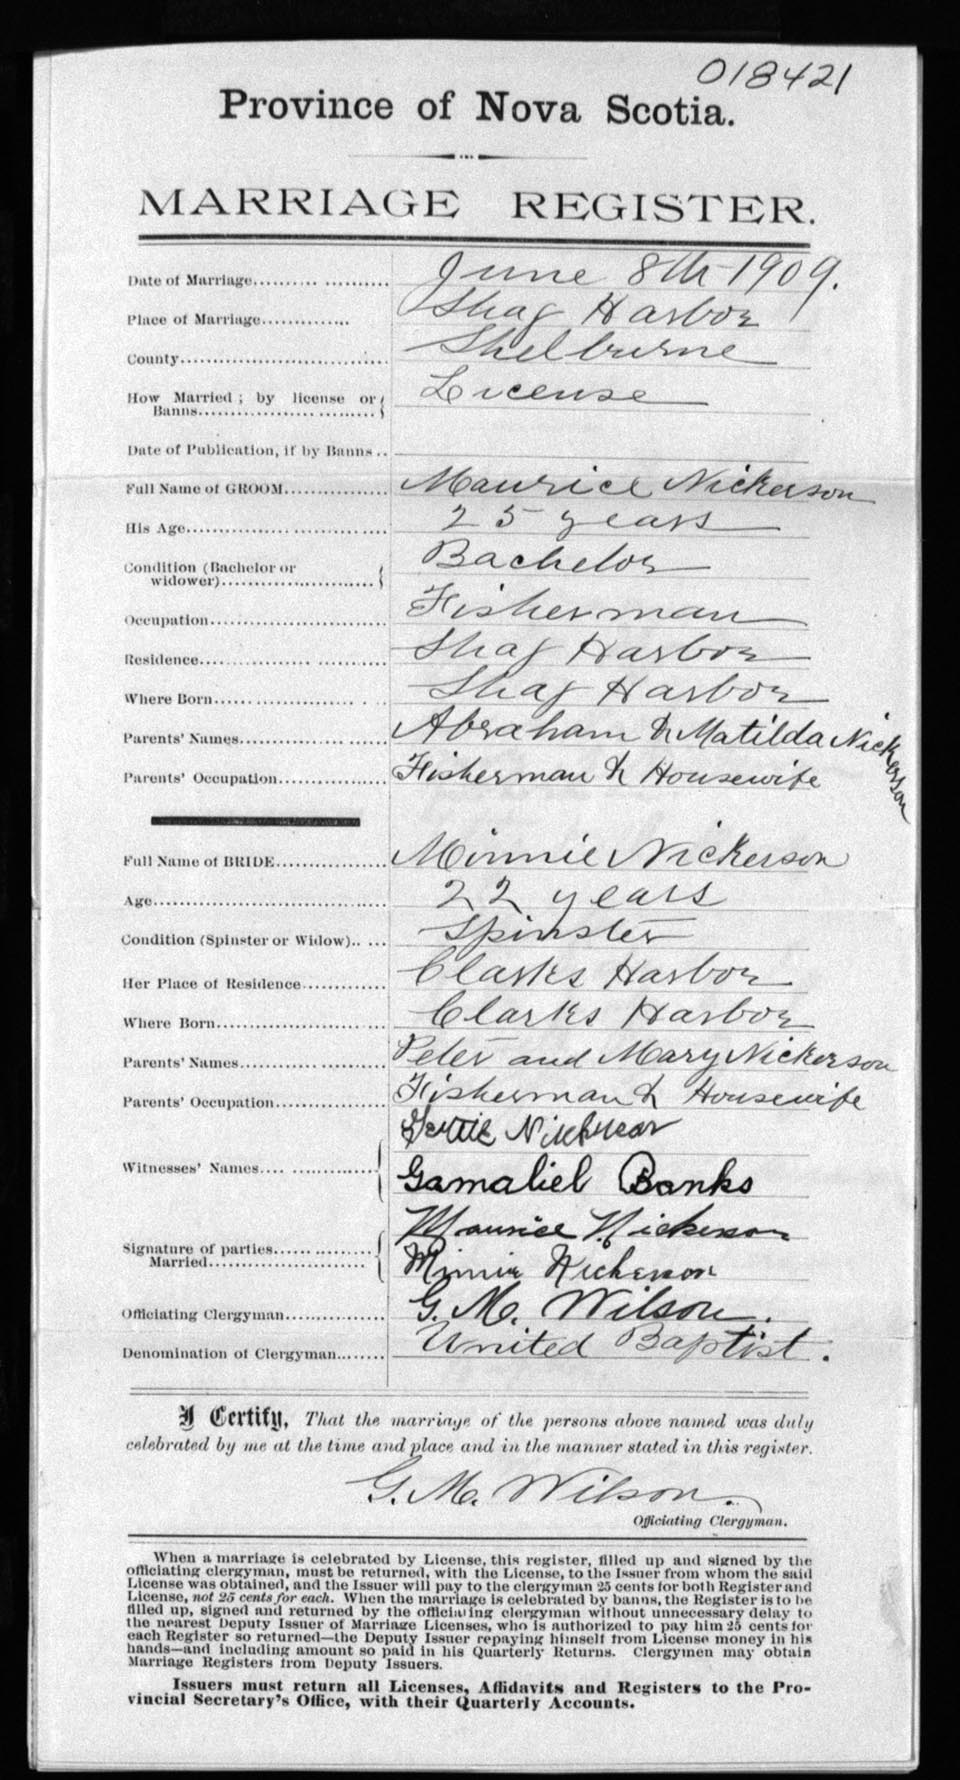 018421
Province of Nova Scotia.
MARRIAGE REGISTER.
Date of Marriage.......... ........... June 8th 1909.
Place of Marriage............. Shag Harbor
County.................................... Shelburne
How Married ; by license or
Banns.......................... License
Date of Publication, if by Banns ..
Full Name of GROOM................ Maurice Nickerson
His Age.................................. 25 years
Condition (Bachelor or
widower)......................... Bachelor
Occupation............................. Fisherman
Residence................. ............ Shag Harbor
Where Born...... ................. . . Shag Harbor
Parents' Names................ ....... Abraham & Matilda Nickerson
Parents' Occupation................. Fisherman & Housewife
Full Name of BRIDE................. Minnie Nickerson
Age....................................... 22 years
Condition (Spinster or Widow).. ... Spinster
Her Place of Residence............. Clarks Harbor
Where Born......................... ... Clarks Harbor
Parents' Names............. ........... Peter and Mary Nickerson
Parents' Occupation.................. Fisherman & Housewife
Witnesses' Names.... ..............
Gamaliel Banks
Signature of parties...... ............ Maurice Nickerson
Married.......................... Minnie Nickerson
Officiating Clergyman................ G. M. Wilson.
Denomination of Clergyman........ United Baptist.
I Certify, That the marriage of the persons above named was duly
celebrated by me at the time and place and in the manner stated in this register.
G. M. Wilson.
Officiating Clergyman.
When a marriage is celebrated by License, this register, filled up and signed by the
officiating clergyman, must be returned, with the License, to the Issuer from whom the said
License was obtained, and the Issuer will pay to the clergyman 25 cents for both Register and
License, not 25 cents for each. When the marriage is celebrated by banns, the Register is to be
filled up, signed and returned by the officiating clergyman without unnecessary delay to
the nearest Deputy Issuer of Marriage Licenses, who is authorized to pay him 25 cents for
each Register so returned—the Deputy Issuer repaying himself from License money in his
hands—and including amount so paid in his Quarterly Returns. Clergymen may obtain
Marriage Registers from Deputy Issuers.
Issuers must return all Licenses, Affidavits and Registers to the Pro-
vincial Secretary's Office, with their Quarterly Accounts.